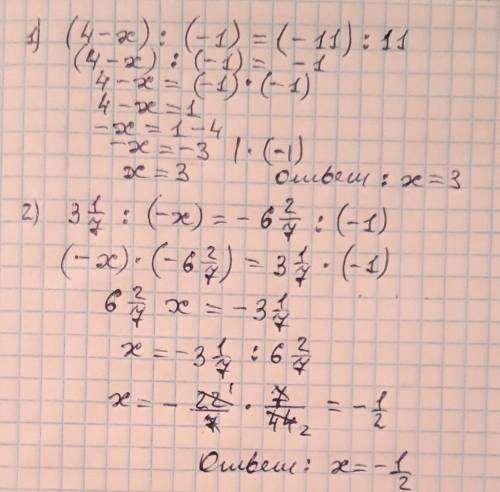 1) (4-x) : (-1) = (-11) : 11
(4-x) : (-1) = -1
4-x = (-1)·(-1)
4-x = 1
-x = 1-4
-x = -3 | · (-1)
x = 3 Ответ: x = 3
2) 3 1/7 : (-x) = -6 2/7 : (-1)
(-x)·(-6 2/7) = 3 1/7 · (-1)
6 2/7 x = -3 1/7
x = -3 1/7 : 6 2/7
x = - 22 1/7 · 7/44 2 = - 1/2
Ответ: x = - 1/2